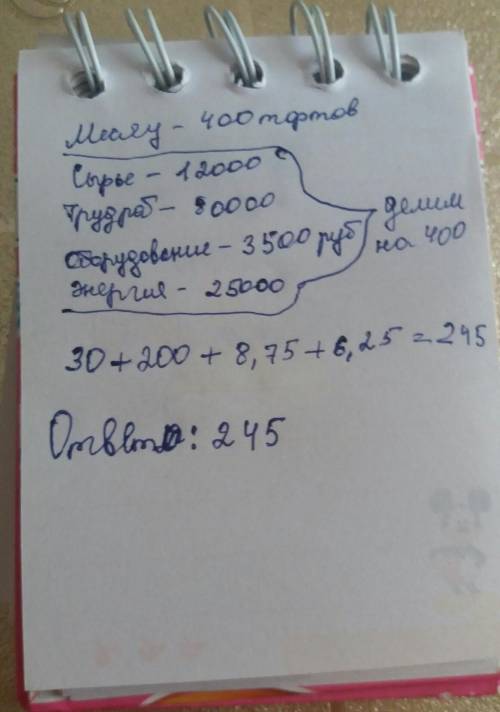 Месяц - 400 тортов
Сырье - 12000
Трудраб - 80000
Оборудование - 3500 руб
Энергия - 25000
делим
на 400
30 + 200 + 8,75 + 6,25 = 245
Ответ: 245